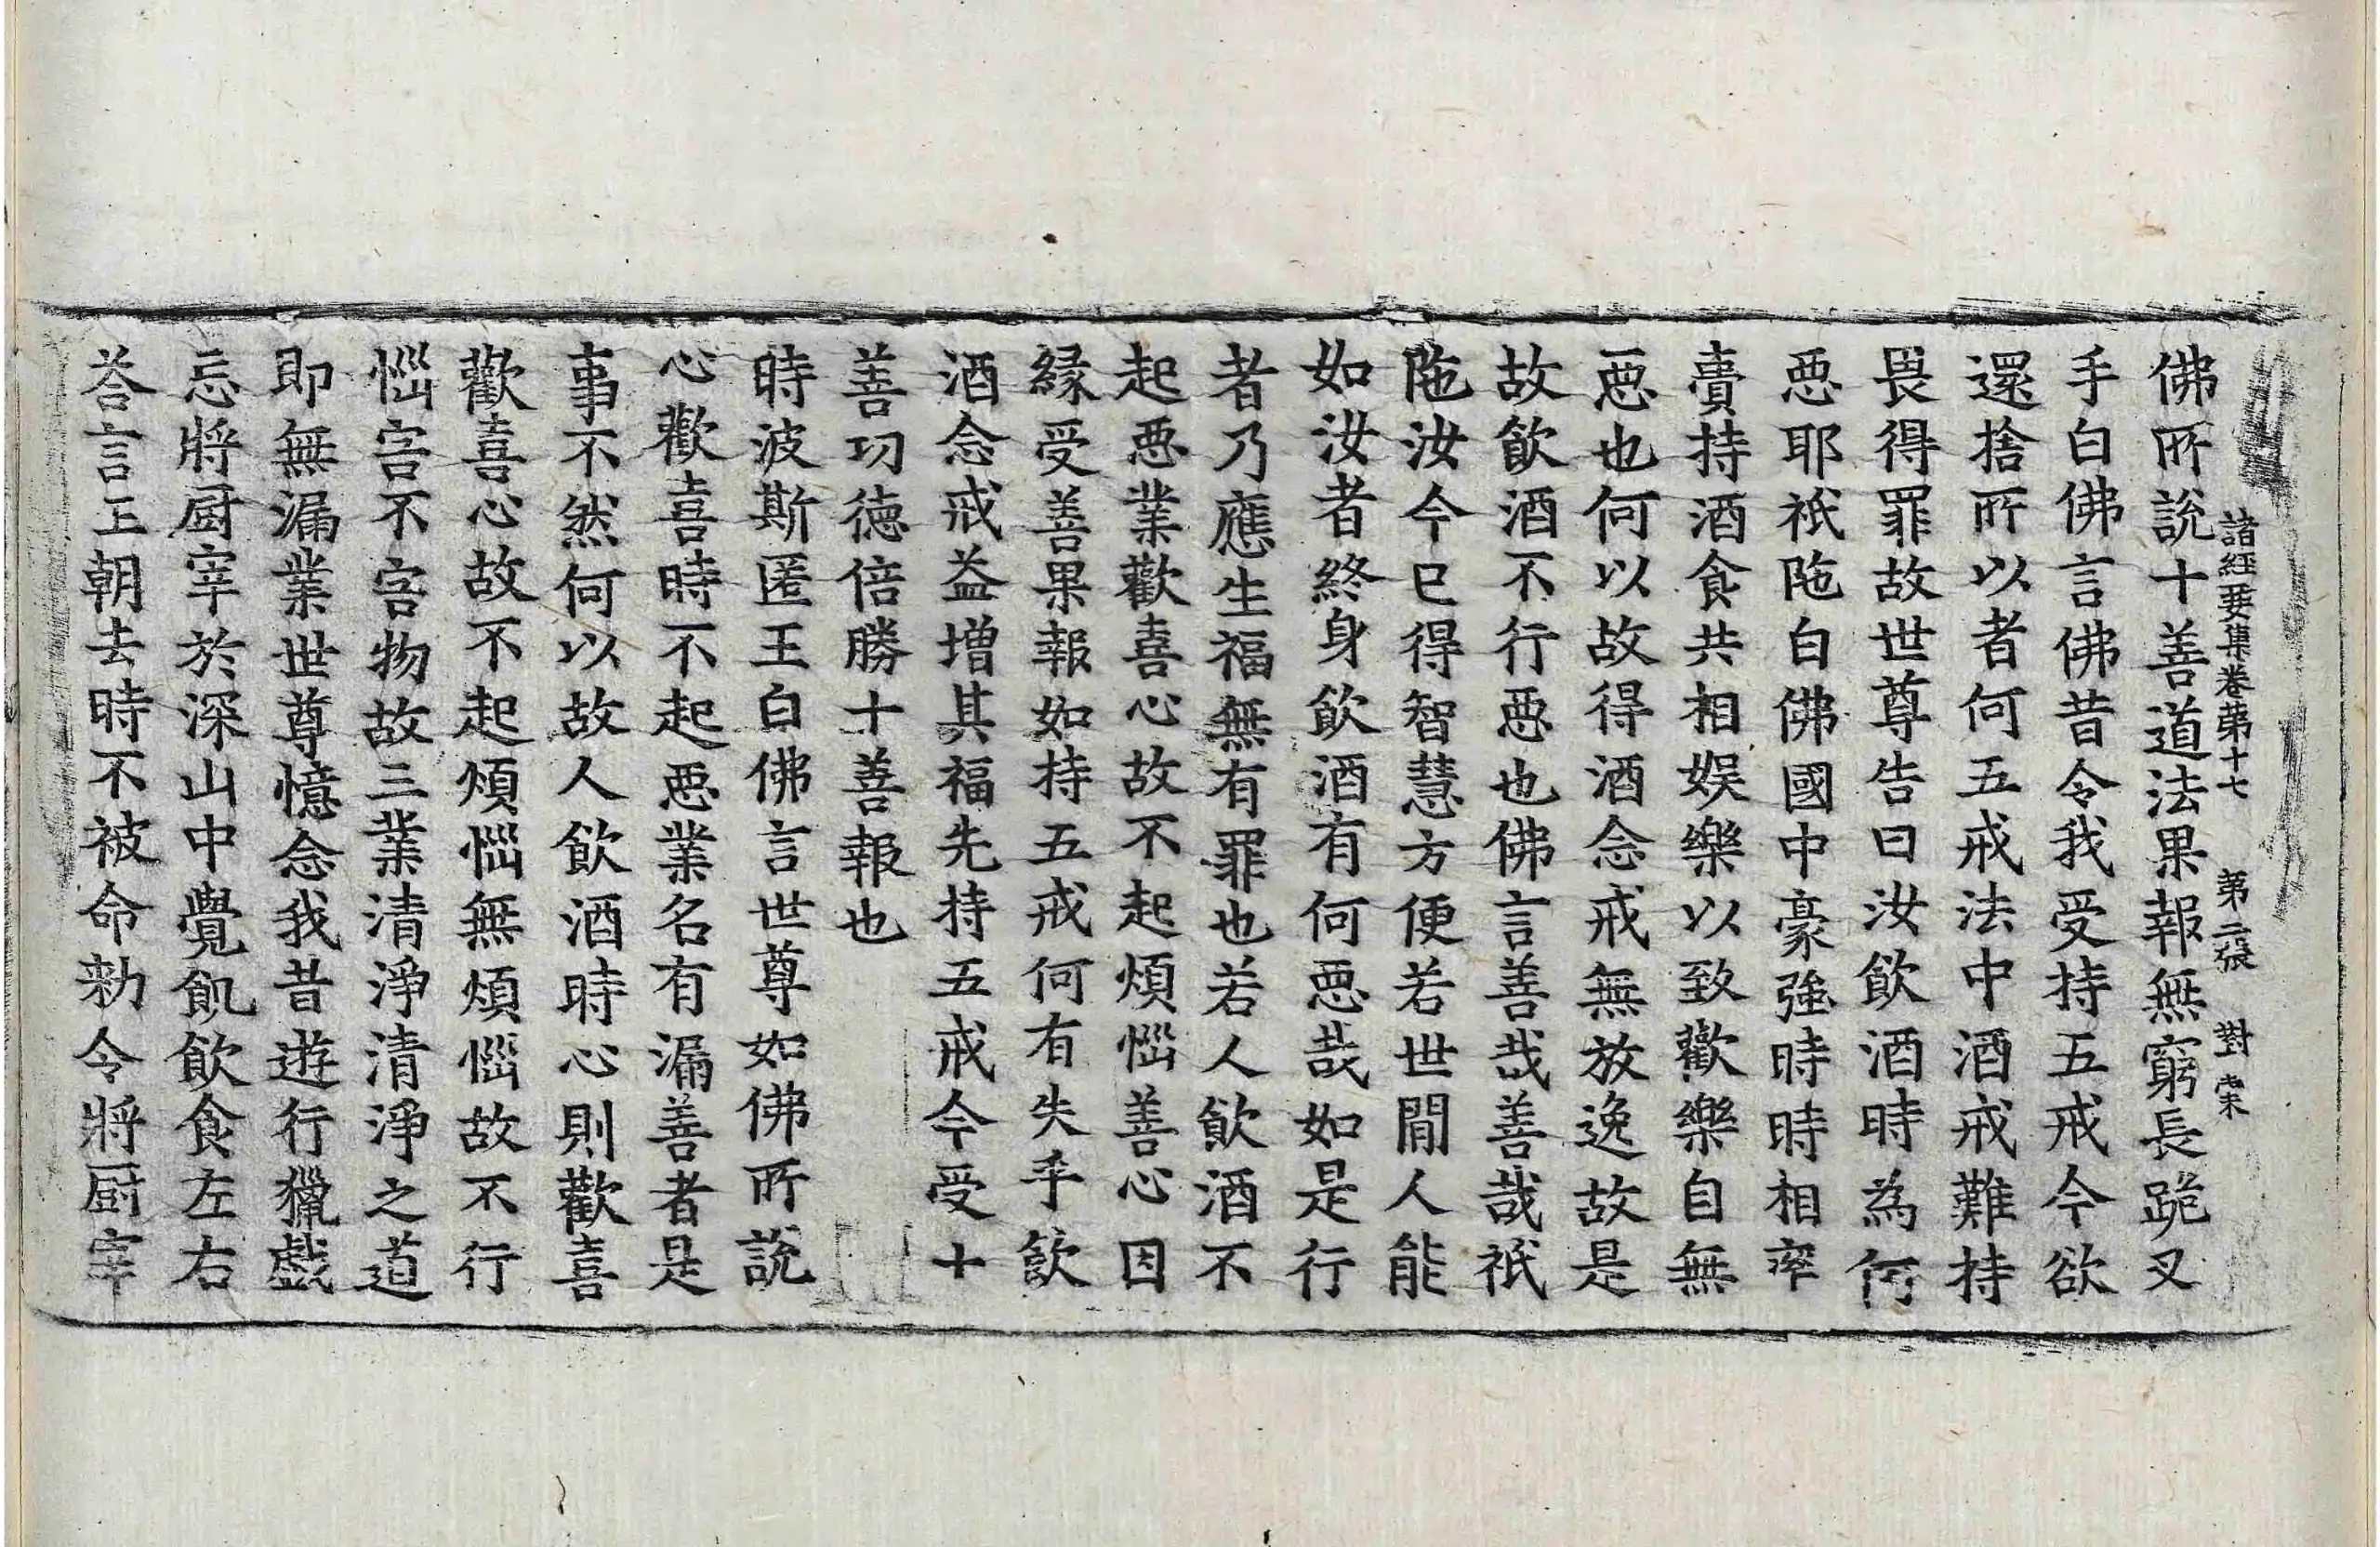 諸經要集卷第十七　第二張　對
佛所說十善道法果報無窮長跪叉
手白佛言佛昔令我受持五戒今欲
還捨所以者何五戒法中酒戒難持
畏得罪故世尊告曰汝飲酒時為何
惡耶祇陁白佛國中豪強時時相率
賷持酒食共相娛樂以致歡樂自無
惡也何以故得酒念戒無放逸故是
故飲酒不行惡也佛言善哉善哉祇
陁汝今已得智慧方便若世閒人能
如汝者終身飲酒有何惡哉如是行
者乃應生福無有罪也若人飲酒不
起惡業歡喜心故不起煩惱善心因
緣受善果報如持五戒何有失乎飲
酒念戒益增其福先持五戒今受十
善功德倍勝十善報也
時波斯匿王白佛言世尊如佛所說
心歡喜時不起惡業名有漏善者是
事不然何以故人飲酒時心則歡喜
歡喜心故不起煩惱無煩惱故不行
惱害不害物故三業清淨清淨之道
即無漏業世尊憶念我昔遊行獵戲
忘將厨宰於深山中覺飢飲食左右
荅言王朝去時不被命勑令將厨宰